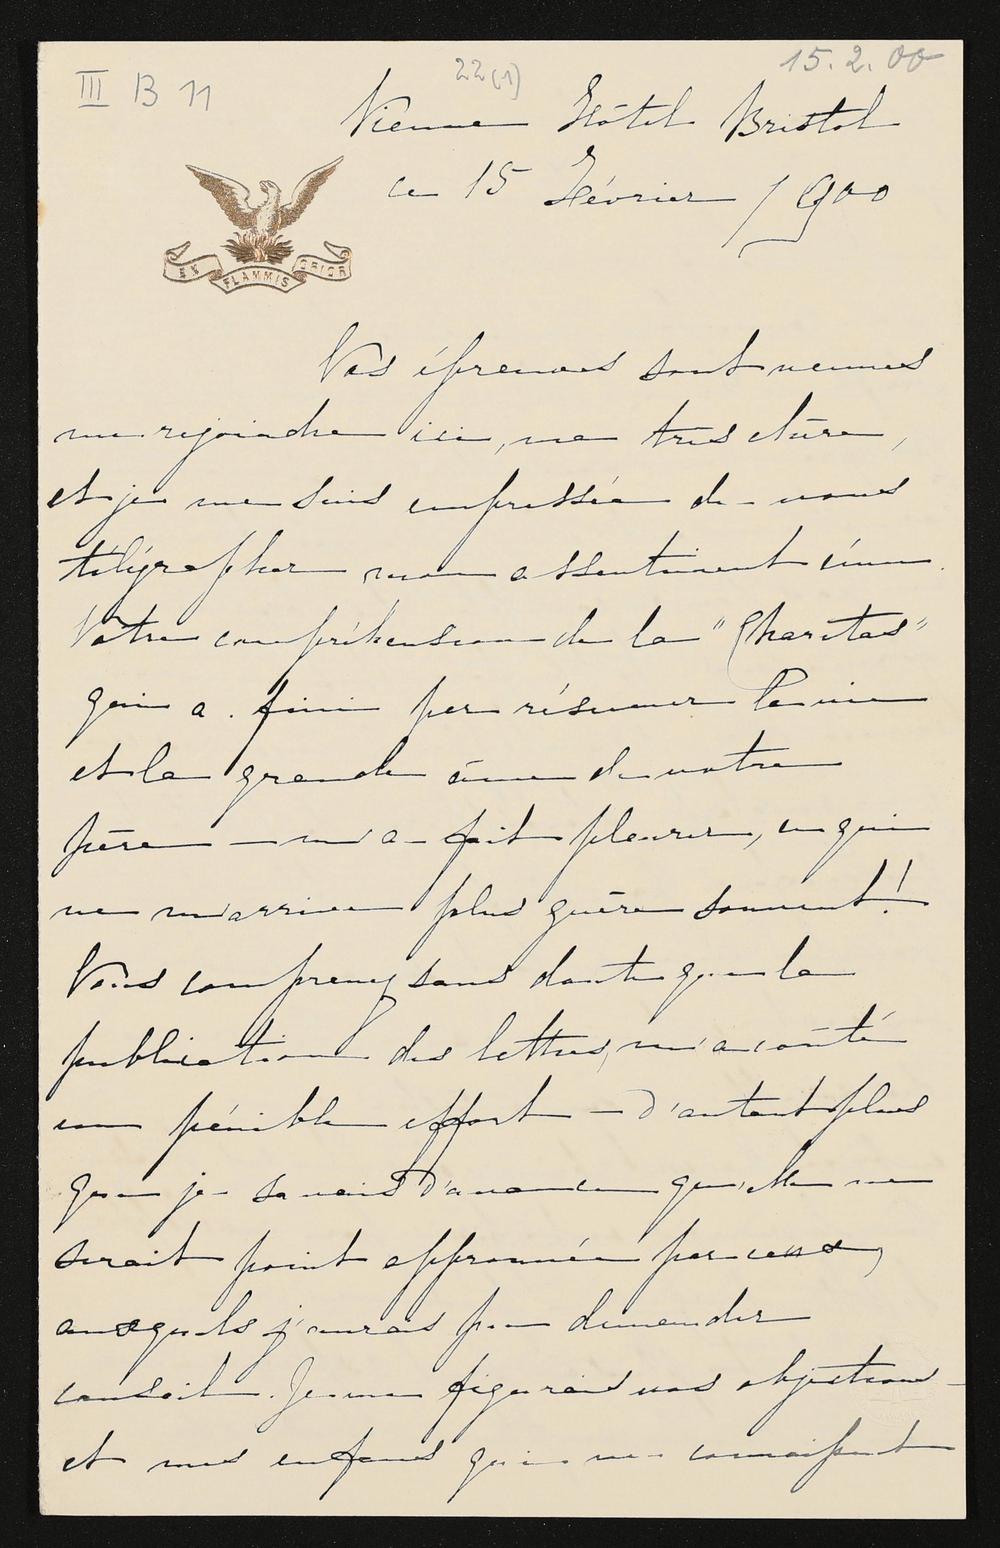 III B 11
22(1)
15. 2. 00
Vienne Hôtel Bristol
ce 15 Février / 900
EX FLAMMIS ORIOR
Vos épreuves sont venues
me rejoindre ici, ma très chère,
et je me suis empressée de vous
télégrapher mon assentiment ému.
Votre compréhension de la "Charitas"
qui a fini par résumer la vie
et la grande âme de votre
père — m'a fait pleurer, ce qui
ne m'arrive plus guère souvent!
Vous comprenez sans doute que la
publication des lettres, m'a coûté
un pénible effort — d'autant plus
que je savais d'avance qu'elle ne
serait point approuvée par ceux,
auxquels j'aurais pu demander
conseil. Je me figurais vos objections —
et mes enfants qui ne connaissent